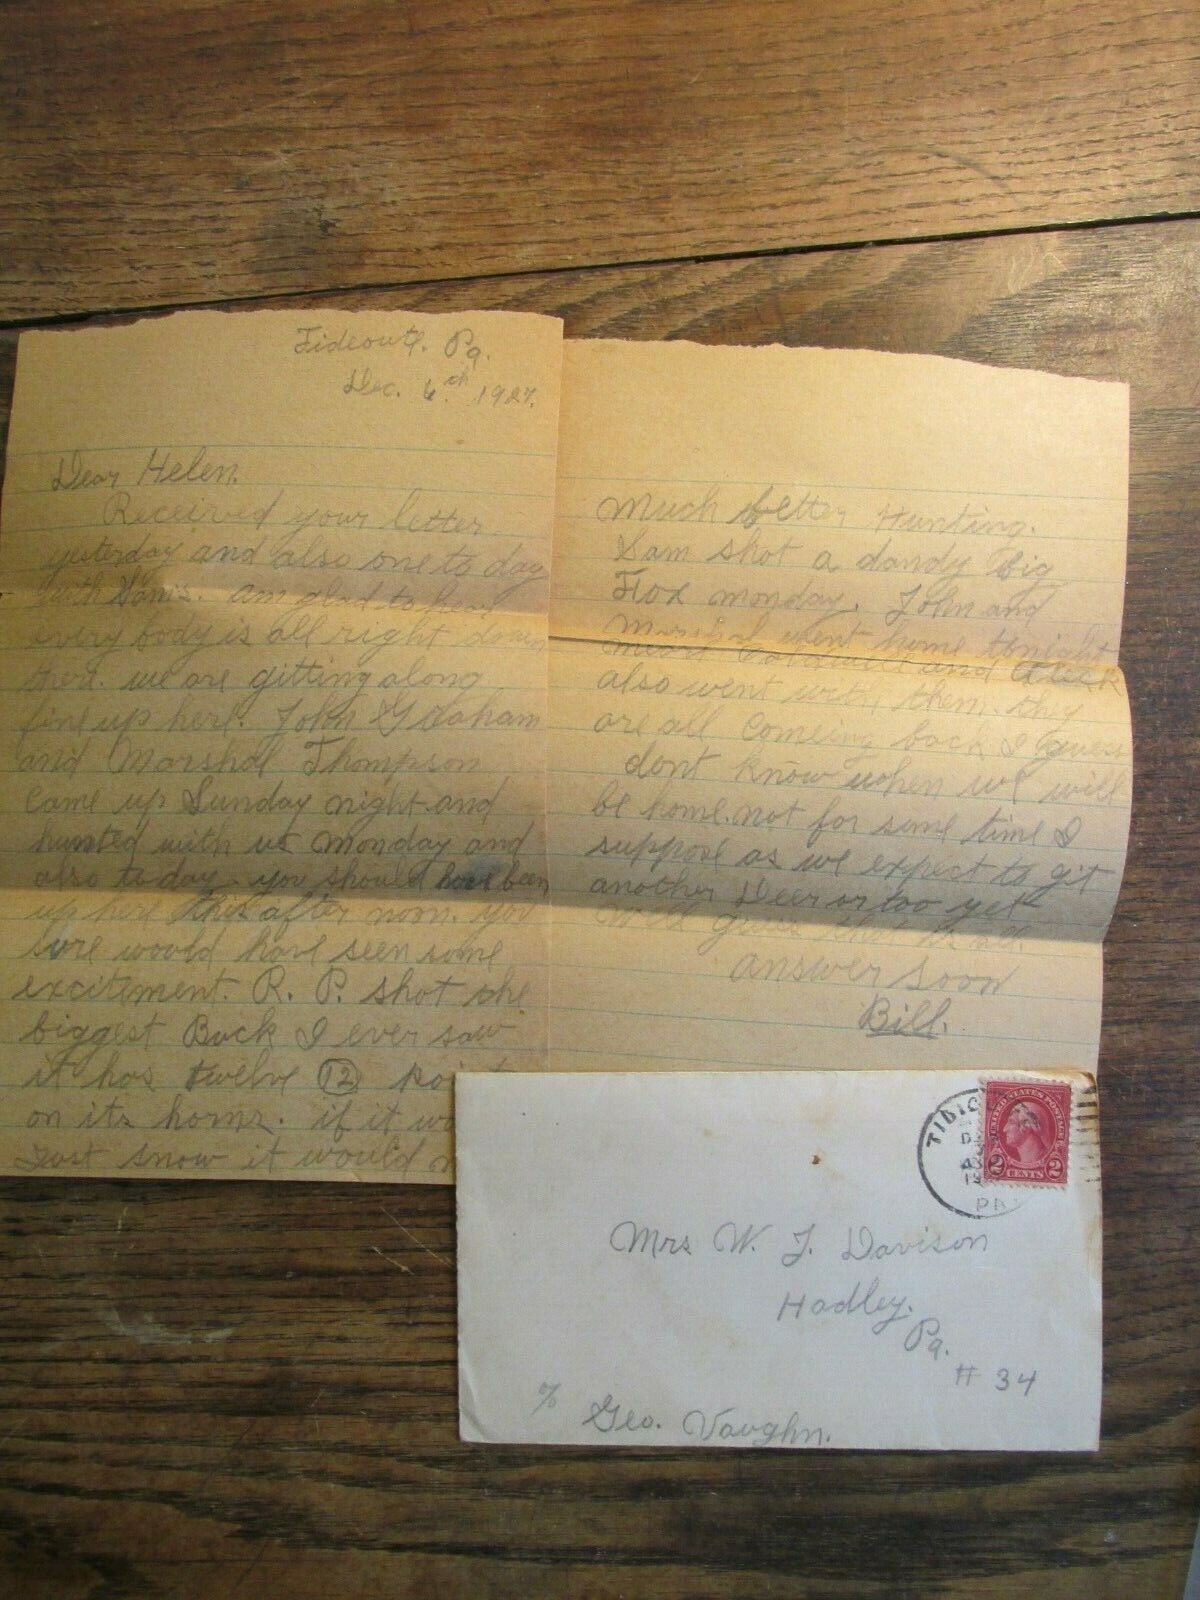 Tideoute. Pa.
Dec. 6th. 1927.
Dear Helen.
Received your letter
yesterday and also one to day
with Sam's. am glad to hear
every body is all right down
there. we are gitting along
fine up here. John Graham
and Marshal Thompson
Came up Sunday night and
hunted with us Monday and
also to day. you should have been
up here this after noon. you
sure would have seen some
excitement. R. P. shot the
biggest Buck I ever saw
it has twelve 12
on its horns. if it
Just snow it would
Much better Hunting.
Sam shot a dandy big
Fox monday. John and
Marshal went home tonight
and
also went with them. they
are all comeing back I guess
dont know when we will
be home. not for some time I
suppose as we expect to git
another Deer or too yet
Well guess that is all.
answer soon
Bill.
PA
UNITED STATES POSTAGE
2 CENTS 2
Mrs W. J. Davison
Hadley.
Pa.
# 34
% Geo. Vaughn.